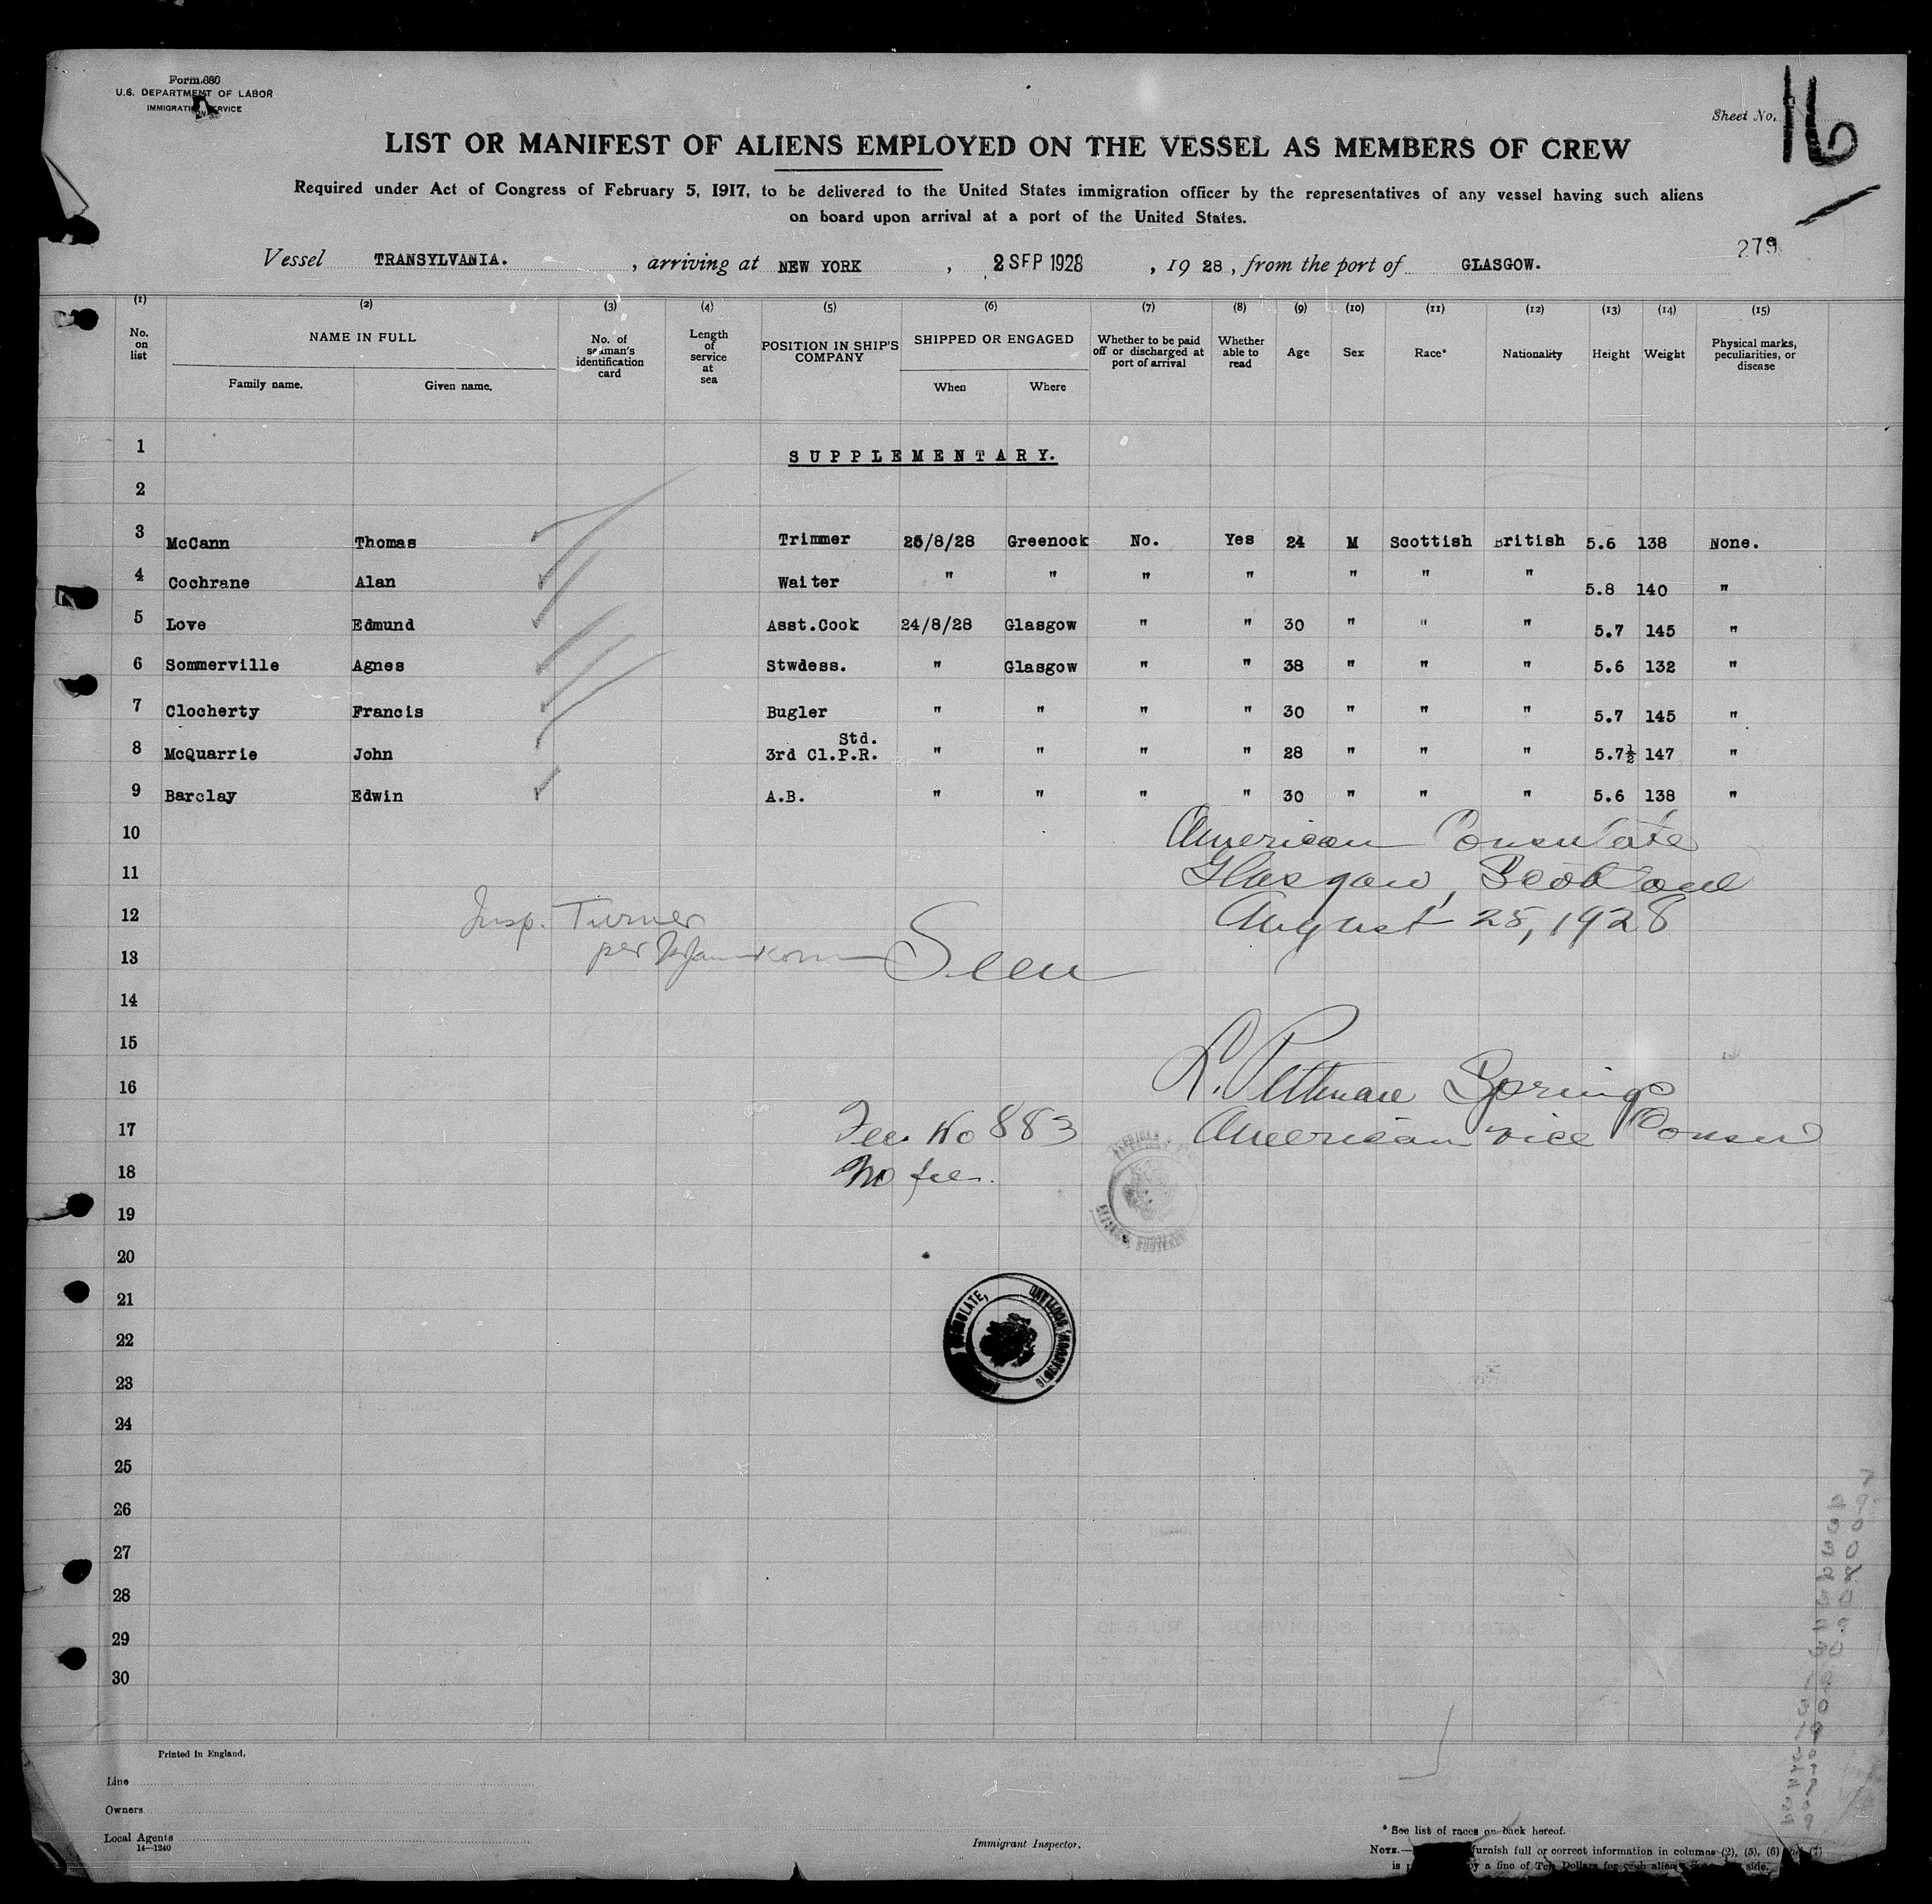 Form 680
U.S. DEPARTMENT OF LABOR
IMMIGRATION SERVICE
Sheet No. 16
LIST OR MANIFEST OF ALIENS EMPLOYED ON THE VESSEL AS MEMBERS OF CREW
Required under Act of Congress of February 5, 1917, to be delivered to the United States immigration officer by the representatives of any vessel having such aliens
on board upon arrival at a port of the United States.
279
Vessel TRANSYLVANIA. , arriving at NEW YORK , 2 SEP 1928 , 19 28 , from the port of GLASGOW.
(1) (2) (3) (4) (5) (6) (7) (8) (9) (10) (11) (12) (13) (14) (15)
No. on list NAME IN FULL Family name. Given name. No. of seaman's identification card Length of service at sea POSITION IN SHIP'S COMPANY SHIPPED OR ENGAGED When Where Whether to be paid off or discharged at port of arrival Whether able to read Age Sex Race* Nationality Height Weight Physical marks, peculiarities, or disease
1 SUPPLEMENTARY.
2
3 McCann Thomas Trimmer 25/8/28 Greenock No. Yes 24 M Scottish British 5.6 138 None.
4 Cochrane Alan Waiter " " " " " " " 5.8 140 "
5 Love Edmund Asst.Cook 24/8/28 Glasgow " " 30 " " " 5.7 145 "
6 Sommerville Agnes Stwdess. " Glasgow " " 38 " " " 5.6 132 "
7 Clocherty Francis Bugler " " " " 30 " " " 5.7 145 "
8 McQuarrie John Std. 3rd Cl.P.R. " " " " 28 " " " 5.7½ 147 "
9 Barclay Edwin A.B. " " " " 30 " " " 5.6 138 "
10 American Consulate
11 Glasgow, Scotland
12 Insp. Turner August 25, 1928
13 per Seen
14
15
16 L. Pittman Springs
17 Fee No 883 American Vice Consul
18 No fee.
19
20
21
22
23
24
25
26
27
28
29
30
Printed in England.
Line
Owners
Local Agents
14—1240
Immigrant Inspector.
* See list of races on back hereof.
NOTE.— furnish full or correct information in columns (2), (5), (6) (7)
is by a fine of Ten Dollars for each alien side.